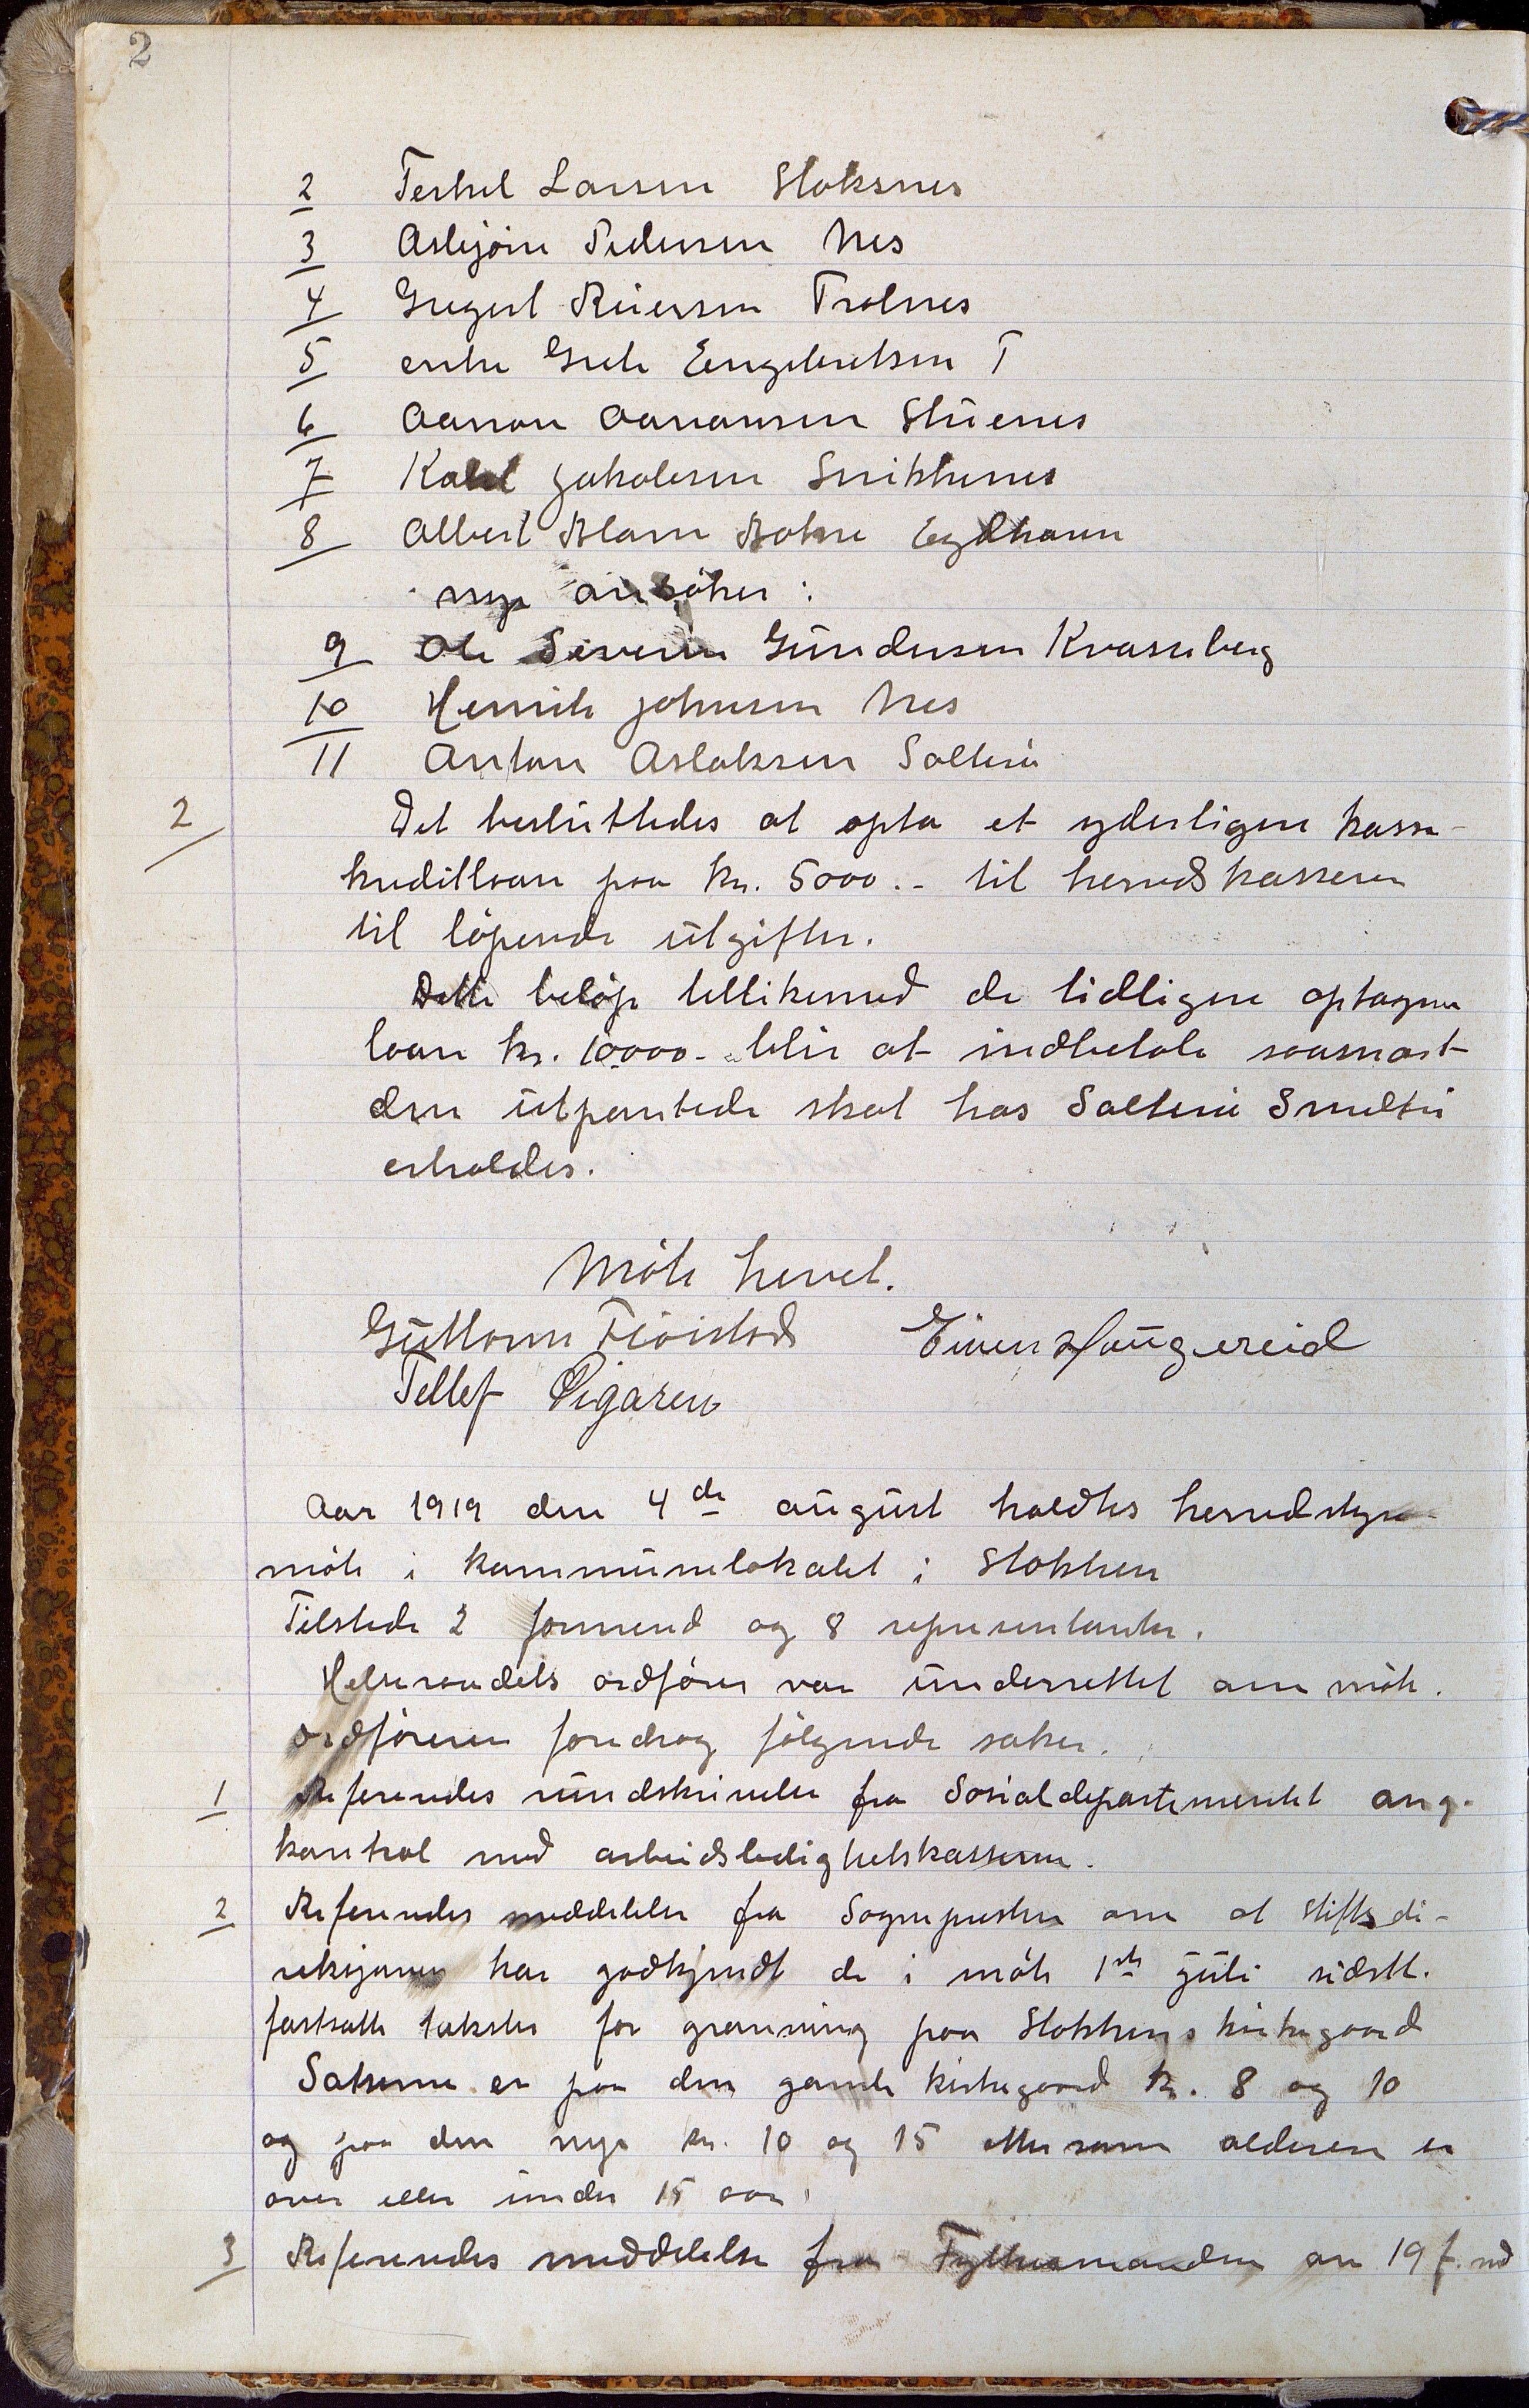 2
2 Terkel Larsen Stoksnes
3 Asbjørn Pedersen Nes
4 Gregert Reiersen Trolnes
5 enke Grete Engebretsen T
6 Aanon Aanonsen Stuenes
7 Kalel Jakobsen Snikkernes
8 Albert Blom Bohne Eydhavn
nye ansøker:
9 Ole Severin Gundersen Kvasseberg
10 Henrik Johnsen Nes
11 Anton Aslaksen Salterü
2 Det besluttedes at opta et yderligere kasse-
kreditlaan paa kr. 5000.- til herredskasseren
til løpende utgifter.
Dette beløp tellikemed de tidligere optagne
laan kr. 10000.- blir at indbetale saasnart
den utpantede skat hos Salterü Smelteri
erholdes.
Møte hevet.
Guttorm Fløistad Einer Haugereid
Tellef Øigaren
Aar 1919 den 4de august holdtes herredstyre-
møte i kommunelokalet i Stokken
Tilstede 2 formend og 8 representanter.
Helseraadets ordfører var underrettet om møte.
Ordføreren foredrog følgende saker.
1 Referertes rundskrivelse fra Sosialdepartementet ang.
kontrol med arbeidsledighetskasserne.
2 Referertes meddelelse fra Sognepresten om at Stiftsdi-
reksjonen har godkjendt de i møte 1ste juli sidstl.
fastsatte takster for gravning paa Stokkens kirkegaard
Satserne er paa den gamle kirkegaard kr. 8 og 10
og paa den nye kr. 10 og 15 eftersom alderen er
over eller under 15 aar.
3 Referertes meddelelse fra Fylkesmanden om 19 f. md